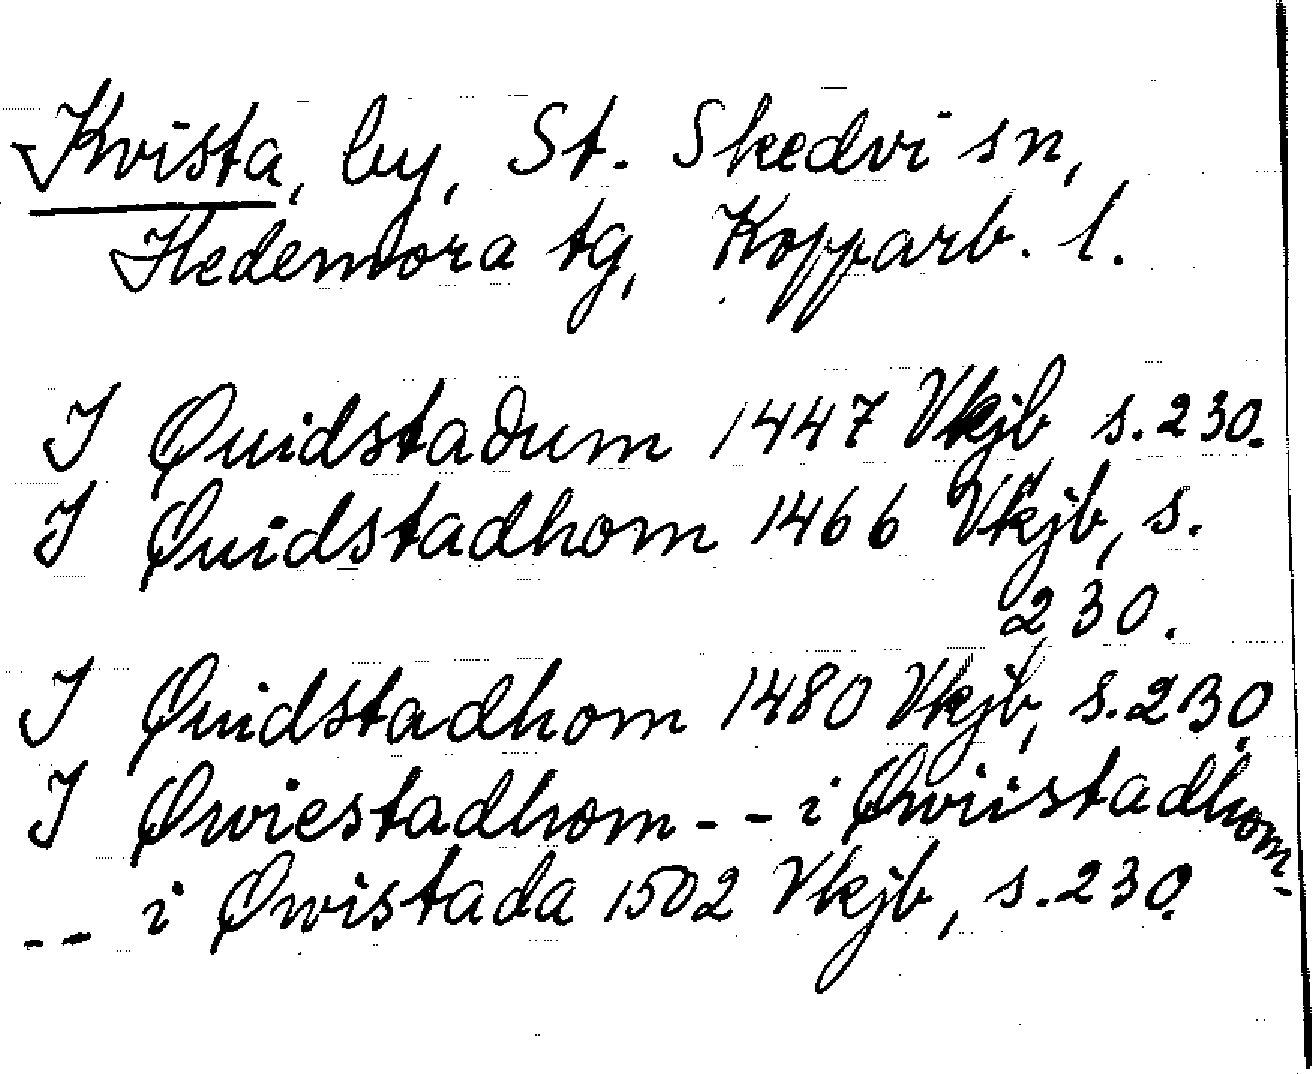 Kvista, by, St. Skedvi sn,
Hedemora tg, Kopparb. l.
I Quidstadum 1447 Vkjb s. 230.
I Quidstadhom 1466 Vkjb, s.
230.
I Quidstadhom 1480 Vkjb, s. 230.
I Qwiestadhom -- i Qwiistadhom-
-- i Qwistada 1502 Vkjb, s. 230.